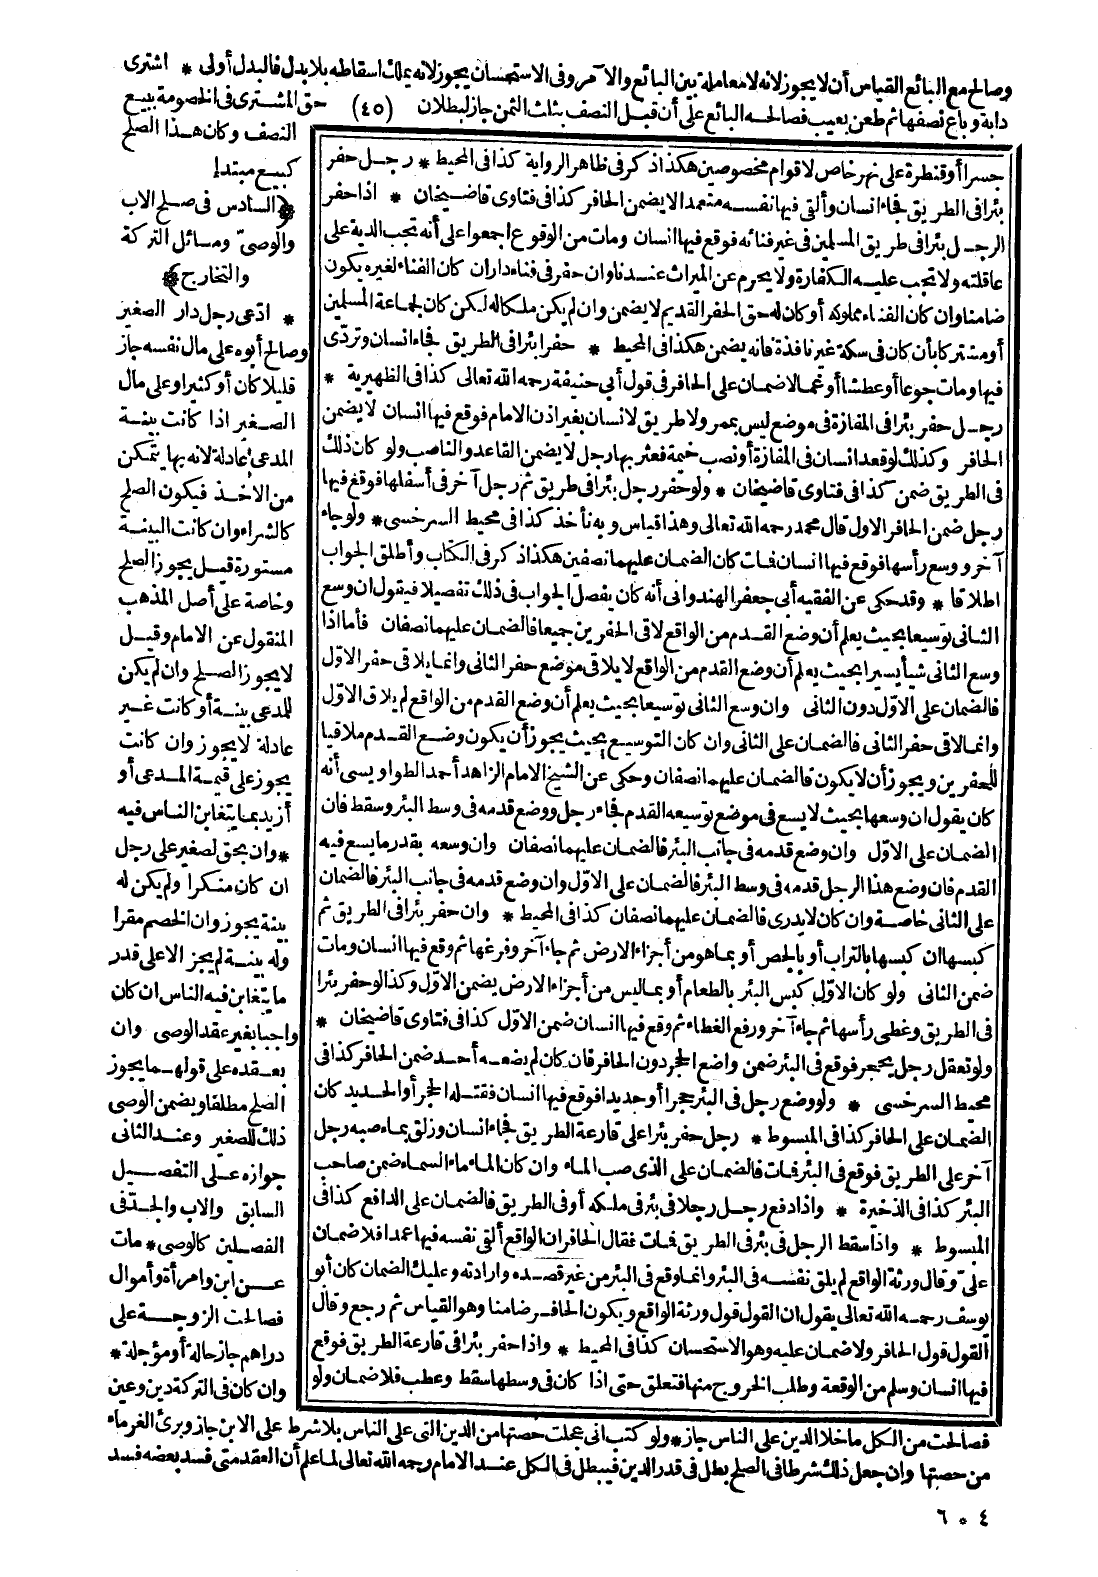 وصالح مع البائع القياس أن لا يجوز لانه لا معاملة بين البائع والآمر وفى الاستحسان يجوز لانه يملك اسقاطه بلا بدل فالبدل أولى * اشترى
دابة وباع نصفها ثم طعن بعيب فصالحه البائع على أن قبل النصف بثلث الثمن جاز لبطلان (٤٥) حق المشترى فى الخصومة ببيع
النصف وكان هذا الصلح
كبيع مبتدإ
﴿السادس فى صلح الاب
والوصىّ ومسائل التركة
والتخارج﴾
* ادّعى رجل دار الصغير
وصالح أبوه على مال نفسه جاز
قليلا كان أو كثيرا وعلى مال
الصغير اذا كانت بينة
المدعى عادلة لانه بها يتمكن
من الاخذ فيكون الصلح
كالشراء وان كانت البينة
مستورة قيل يجوز الصلح
وخاصة على أصل المذهب
المنقول عن الامام وقيل
لا يجوز الصلح وان لم يكن
للمدعى بينة أو كانت غير
عادلة لا يجوز وان كانت
يجوز على قيمة المدعى أو
أزيد بما يتغابن الناس فيه
* وان بحق لصغير على رجل
ان كان منكرا ولم يكن له
بينة يجوز وان الخصم مقرا
وله بينة لم يجز الا على قدر
ما يتغابن فيه الناس ان كان
واجبا بغير عقد الوصى وان
بعقده على قولهما يجوز
الصلح مطلقا ويضمن الوصى
ذلك للصغير وعند الثانى
جوازه على التفصيل
السابق والاب والجدّ فى
الفصلين كالوصى * مات
عن ابن وامرأة وأموال
فصالحت الزوجة على
دراهم جاز حالة أو مؤجلة *
وان كان فى التركة دين وعين
جسرا أو قنطرة على نهر خاص لاقوام مخصوصين هكذا ذكر فى ظاهر الرواية كذا فى المحيط * رجل حفر
بئرا فى الطريق فجاء انسان وألقى فيها نفسه متعمدا لا يضمن الحافر كذا فى فتاوى قاضيخان * اذا حفر
الرجل بئرا فى طريق المسلمين فى غير فنائه فوقع فيها انسان ومات من الوقوع اجمعوا على أنه تجب الدية على
عاقلته ولا تجب عليه الكفارة ولا يحرم عن الميراث عندنا وان حفر فى فناء دار ان كان الفناء لغيره يكون
ضامنا وان كان الفناء مملوكه أو كان له حق الحفر القديم لا يضمن وان لم يكن ملكا له لكن كان لجماعة المسلمين
أو مشتركا بأن كان فى سكة غير نافذة فانه يضمن هكذا فى المحيط * حفر بئرا فى الطريق فجاء انسان وتردّى
فيها ومات جوعا أو عطشا أو غما لا ضمان على الحافر فى قول أبى حنيفة رحمه الله تعالى كذا فى الظهيرية *
رجل حفر بئرا فى المفازة فى موضع ليس بممر ولا طريق لانسان بغير اذن الامام فوقع فيها انسان لا يضمن
الحافر وكذلك لو قعد انسان فى المفازة أو نصب خيمة فعثر بها رجل لا يضمن القاعد والناصب ولو كان ذلك
فى الطريق ضمن كذا فى فتاوى قاضيخان * ولو حفر رجل بئرا فى طريق ثم رجل آخر فى أسفلها فوقع فيها
رجل ضمن الحافر الاول قال محمد رحمه الله تعالى وهذا قياس وبه نأخذ كذا فى محيط السرخسى * ولو جاء
آخر ووسع رأسها فوقع فيها انسان فمات كان الضمان عليهما نصفين هكذا ذكر فى الكتاب وأطلق الجواب
اطلاقا * وقد حكى عن الفقيه أبى جعفر الهندوانى أنه كان يفصل الجواب فى ذلك تفصيلا فيقول ان وسع
الثانى توسيعا بحيث يعلم أن وضع القدم من الواقع لاقى الحفرين جميعا فالضمان عليهما نصفان فأما اذا
وسع الثانى شيأ يسيرا بحيث يعلم أن وضع القدم من الواقع لا يلاقى موضع حفر الثانى وانما يلاقى حفر الاوّل
فالضمان على الاوّل دون الثانى وان وسع الثانى توسيعا بحيث يعلم أن وضع القدم من الواقع لم يلاق الاوّل
وانما لاقى حفر الثانى فالضمان على الثانى وان كان التوسيع بحيث يجوز أن يكون وضع القدم ملاقيا
للحفرين ويجوز أن لا يكون فالضمان عليهما نصفان وحكى عن الشيخ الامام الزاهد أحمد الطواويسى أنه
كان يقول ان وسعها بحيث لا يسع فى موضع توسيعه القدم فجاء رجل ووضع قدمه فى وسط البئر وسقط فان
الضمان على الاوّل وان وضع قدمه فى جانب البئر فالضمان عليهما نصفان وان وسعه بقدر ما يسع فيه
القدم فان وضع هذا الرجل قدمه فى وسط البئر فالضمان على الاوّل وان وضع قدمه فى جانب البئر فالضمان
على الثانى خاصة وان كان لا يدرى فالضمان عليهما نصفان كذا فى المحيط * وان حفر بئرا فى الطريق ثم
كبسها ان كبسها بالتراب أو بالجص أو بما هو من أجزاء الارض ثم جاء آخر وفرغها ثم وقع فيها انسان ومات
ضمن الثانى ولو كان الاوّل كبس البئر بالطعام أو بما ليس من أجزاء الارض يضمن الاوّل وكذا لو حفر بئرا
فى الطريق وغطى رأسها ثم جاء آخر ورفع الغطاء ثم وقع فيها انسان ضمن الاوّل كذا فى فتاوى قاضيخان *
ولو تعقل رجل بحجر فوقع فى البئر ضمن واضع الحجر دون الحافر فان كان لم يضعه أحد ضمن الحافر كذا فى
محيط السرخسى * ولو وضع رجل فى البئر حجرا أو حديدا فوقع فيها انسان فقتله الحجر أو الحديد كان
الضمان على الحافر كذا فى المبسوط * رجل حفر بئرا على قارعة الطريق فجاء انسان وزلق بماء صبه رجل
آخر على الطريق فوقع فى البئر فمات فالضمان على الذى صب الماء وان كان الماء ماء السماء ضمن صاحب
البئر كذا فى الذخيرة * واذا دفع رجل رجلا فى بئر فى ملكه أو فى الطريق فالضمان على الدافع كذا فى
المبسوط * واذا سقط الرجل فى بئر فى الطريق فمات فقال الحافر ان الواقع ألقى نفسه فيها عمدا فلا ضمان
علىّ وقال ورثة الواقع لم يلق نفسه فى البئر وانما وقع فى البئر من غير قصده وارادته وعليك الضمان كان أبو
يوسف رحمه الله تعالى يقول ان القول قول ورثة الواقع ويكون الحافر ضامنا وهو القياس ثم رجع وقال
القول قول الحافر ولا ضمان عليه وهو الاستحسان كذا فى المحيط * واذا حفر بئرا فى قارعة الطريق فوقع
فيها انسان وسلم من الوقعة وطلب الخروج منها فتعلق حتى اذا كان فى وسطها سقط وعطب فلا ضمان ولو
فصالحت من الكل ما خلا الدين على الناس جاز * ولو كتب انى عجلت حصتها من الدين التى على الناس بلا شرط على الابن جاز وبرئ الغرماء
من حصتها وان جعل ذلك شرطا فى الصلح بطل فى قدر الدين فيبطل فى الكل عند الامام رحمه الله تعالى لما علم أن العقد متى فسد بعضه فسد
٦٠٤